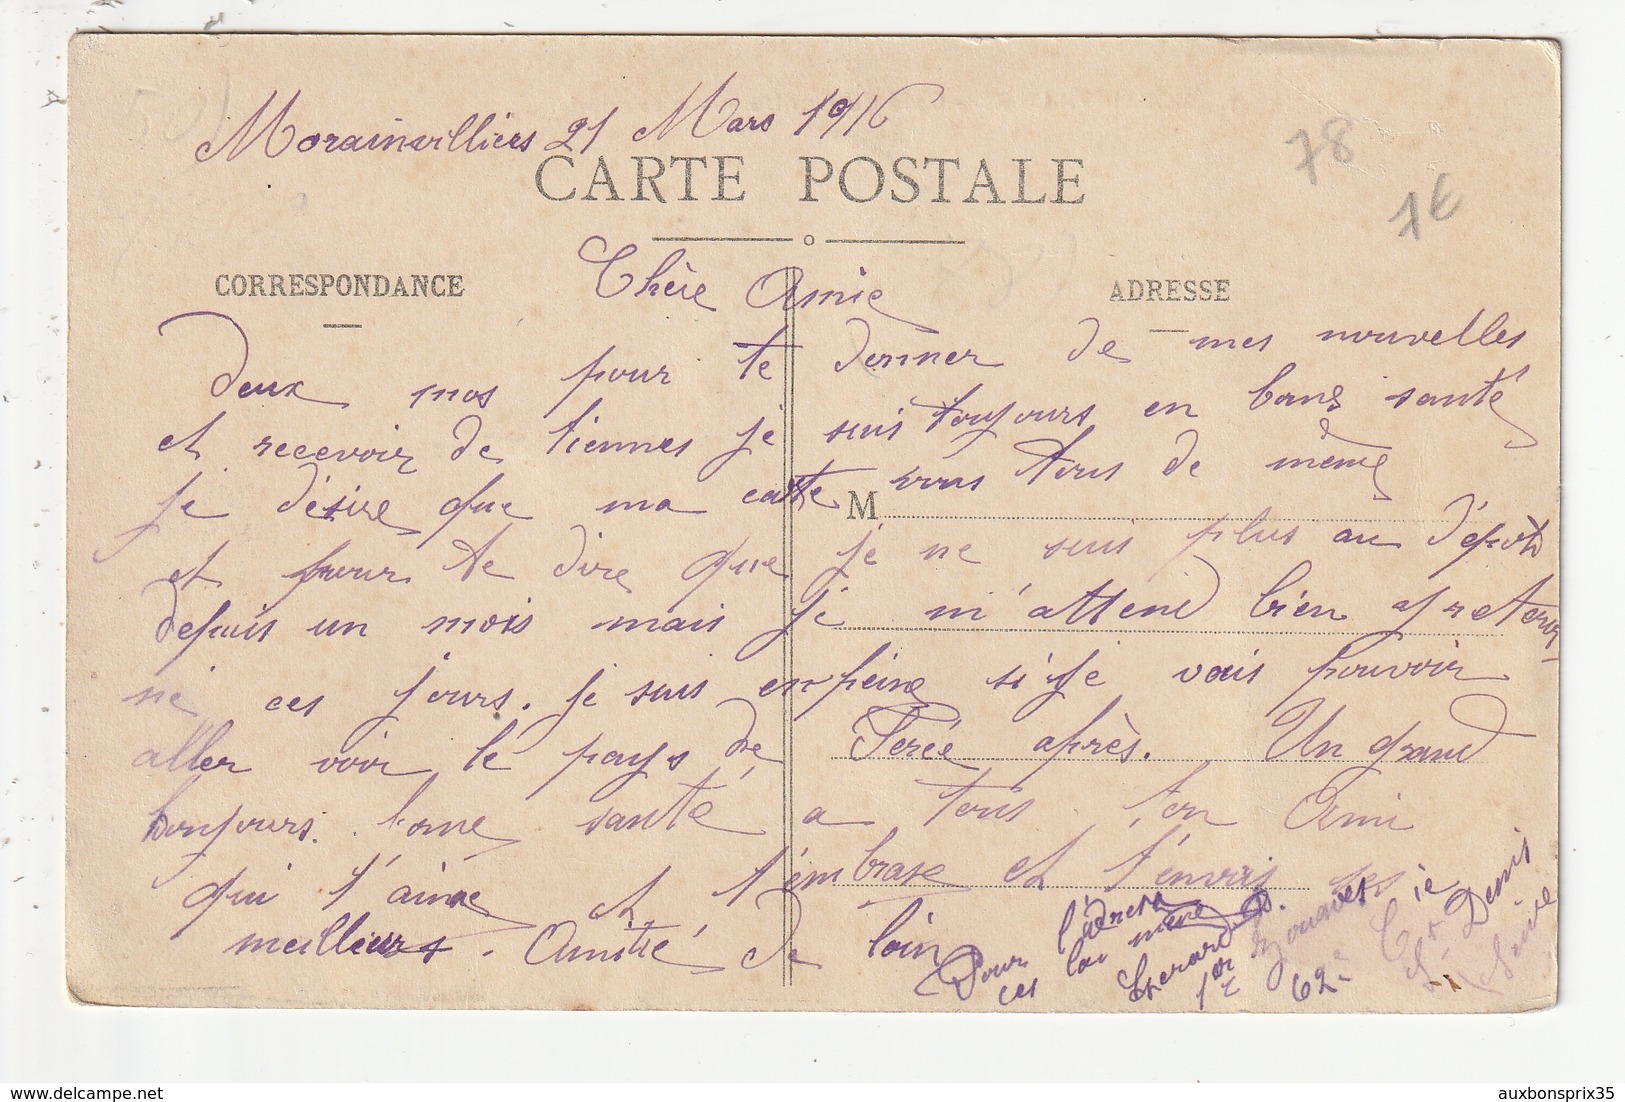 Morainvilliers 21 Mars 1916
78
1€
CARTE POSTALE
CORRESPONDANCE
ADRESSE
Chère Amie
Deux mos pour te donner de mes nouvelles
et recevoir de tiennes je suis toujours en bone santé
je désire que ma carte vous tous de même
M
et pour te dire que je ne suis plus au dépots
depuis un mois mais je m'attend bien a retour-
né ces jours. je suis en peine si je vais pouvoir
aller voir le pays de Serée après. Un grand
bonjours. bone santé a tous. ton Ami
qui t'aime et t'embrase et t'envois ses
meilleurs. Amitié de loin
Pour l'adresse
ces la même
Gerard D.
1er Zouaves
62e Cie
St Denis
Seine
www.delcampe.net
auxbonsprix35